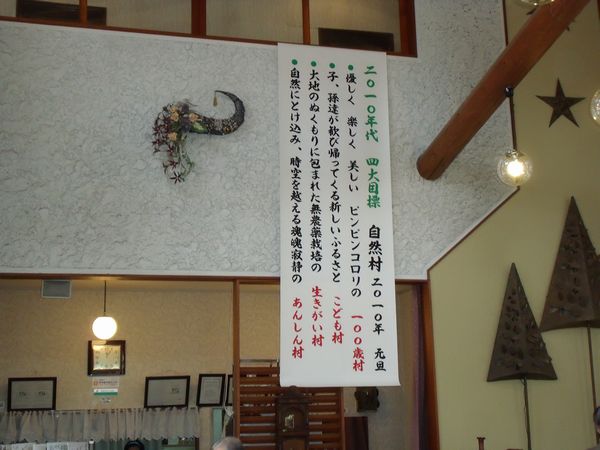 二〇一〇年代 四大目標 自然村 二〇一〇年 元旦
●優しく 楽しく 美しい ピンピンコロリの 一〇〇歳村
●子、孫達が歓び帰ってくる新しいふるさと こども村
●大地のぬくもりに包まれた無農薬栽培の 生きがい村
●自然にとけ込み、時空を越える魂魄寂静の あんしん村